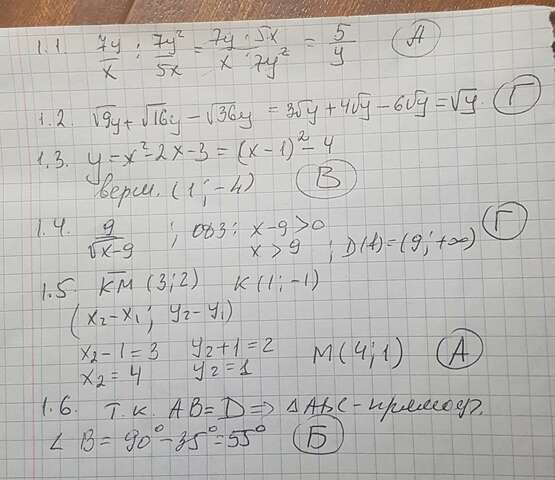 1.1. 7y/x : 7y²/5x = 7y · 5x / x · 7y² = 5/y А
1.2. √9y + √16y − √36y = 3√y + 4√y − 6√y = √y. Г
1.3. y = x² − 2x − 3 = (x − 1)² − 4
верш. (1; −4) В
1.4. 9/√x−9 ; ОВЗ: x − 9 > 0 Г
x > 9 ; D(f) = (9; +∞)
1.5 KM (3; 2) K (1; −1)
(x₂ − x₁ ; y₂ − y₁)
x₂ − 1 = 3 y₂ + 1 = 2 M (4; 1) А
x₂ = 4 y₂ = 1
1.6. т.к. AB = D => △ABC − прямоуг.
∠ B = 90° − 35° = 55° Б